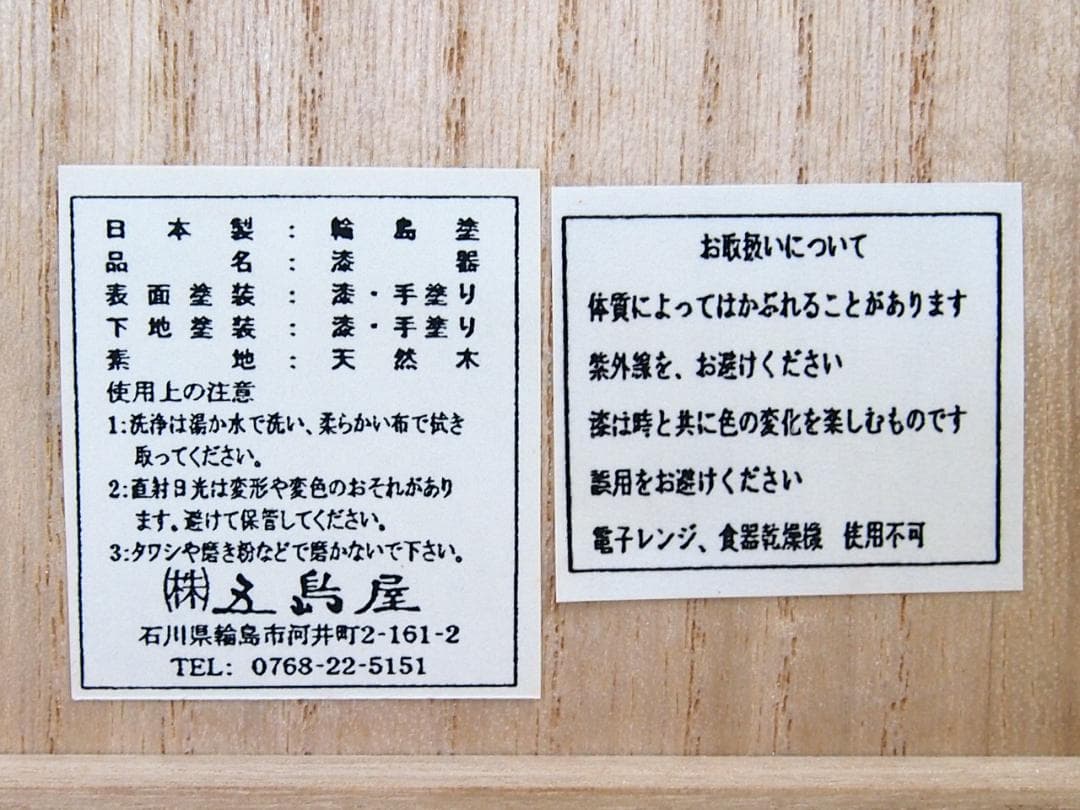 日本製：輪島塗
品名：漆器
表面塗装：漆・手塗り
下地塗装：漆・手塗り
素地：天然木
使用上の注意
1:洗浄は湯か水で洗い、柔らかい布で拭き
取ってください。
2:直射日光は変形や変色のおそれがあり
ます。避けて保管してください。
3:タワシや磨き粉などで磨かないで下さい。
㈱五島屋
石川県輪島市河井町2-161-2
TEL: 0768-22-5151
お取扱いについて
体質によってはかぶれることがあります
紫外線を、お避けください
漆は時と共に色の変化を楽しむものです
誤用をお避けください
電子レンジ、食器乾燥機　使用不可